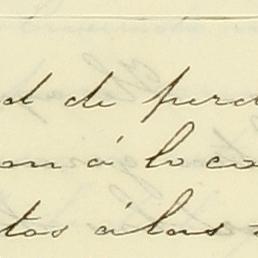 d de perd
on á lo co
tos álas